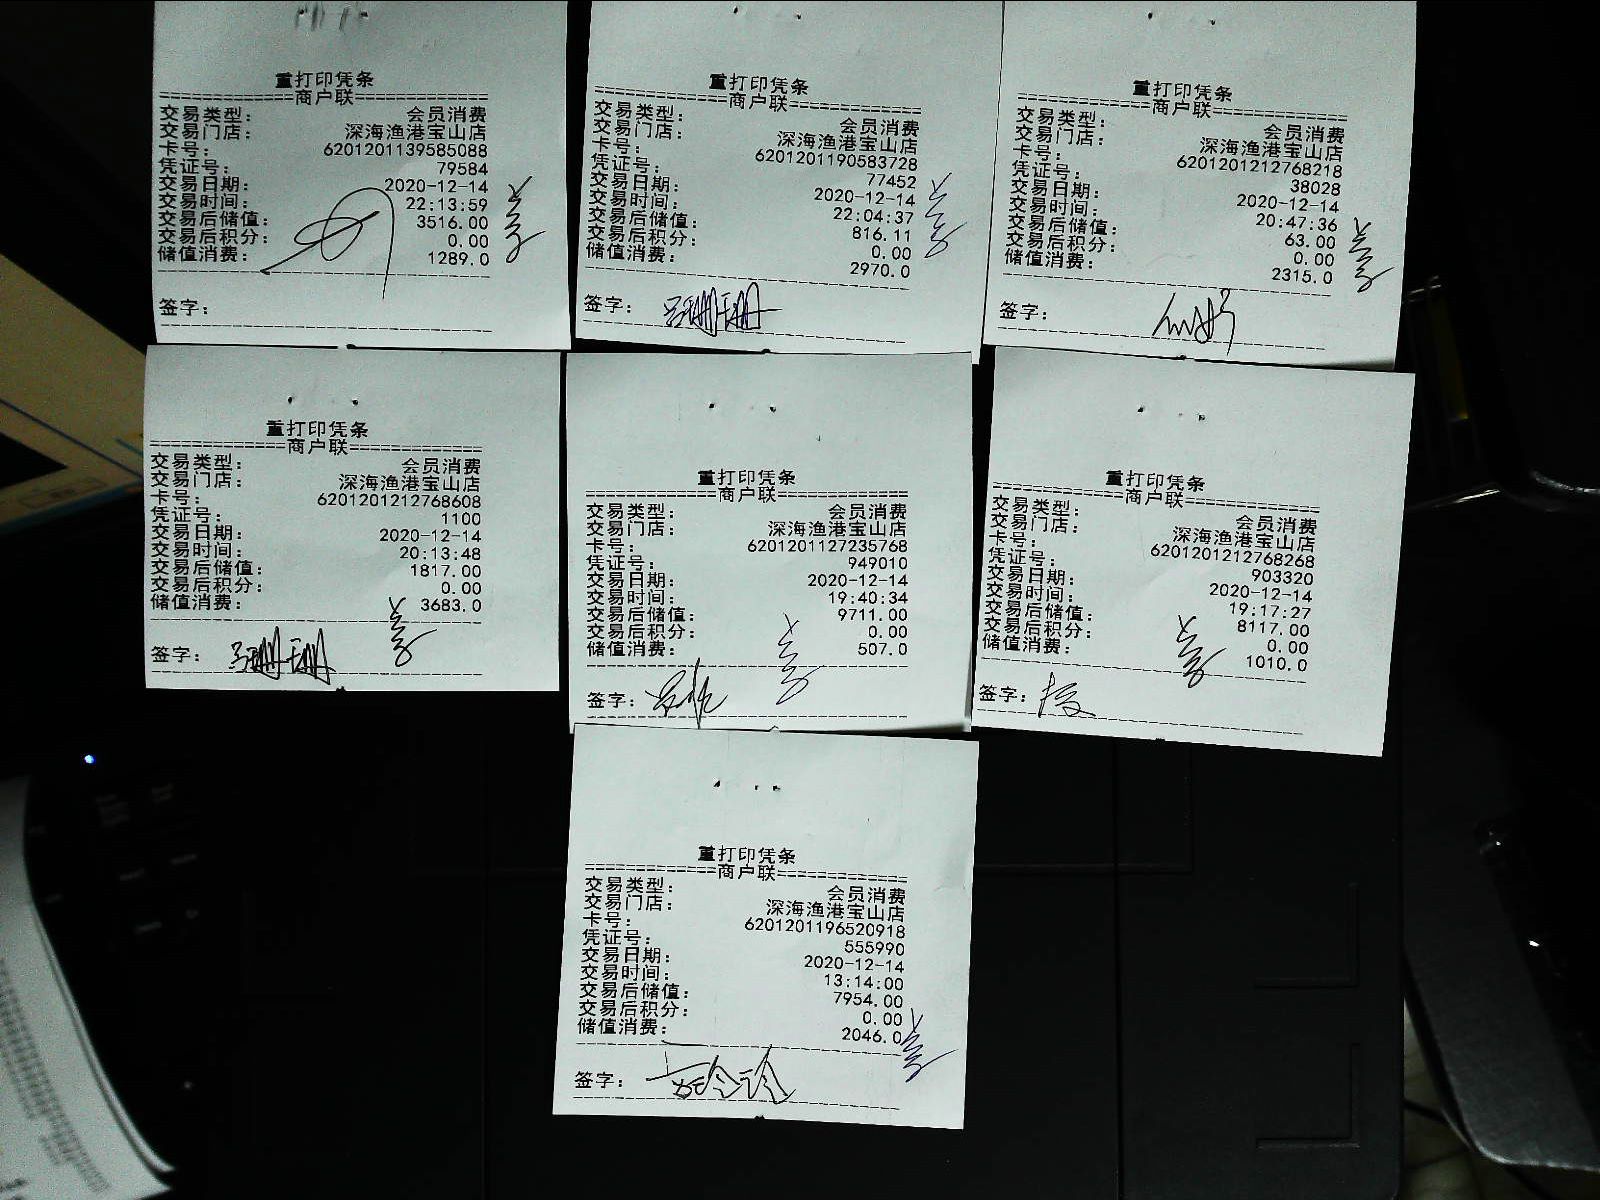 重打印凭条
==============商户联==============
交易类型： 会员消费
交易门店： 深海渔港宝山店
卡号： 6201201139585088
凭证号： 79584
交易日期： 2020-12-14
交易时间： 22:13:59
交易后储值： 3516.00
交易后积分： 0.00
储值消费： 1289.0
签字：
重打印凭条
==============商户联==============
交易类型： 会员消费
交易门店： 深海渔港宝山店
卡号： 6201201190583728
凭证号： 77452
交易日期： 2020-12-14
交易时间： 22:04:37
交易后储值： 816.11
交易后积分： 0.00
储值消费： 2970.0
签字：
重打印凭条
==============商户联==============
交易类型： 会员消费
交易门店： 深海渔港宝山店
卡号： 6201201212768218
凭证号： 38028
交易日期： 2020-12-14
交易时间： 20:47:36
交易后储值： 63.00
交易后积分： 0.00
储值消费： 2315.0
签字：
重打印凭条
==============商户联==============
交易类型： 会员消费
交易门店： 深海渔港宝山店
卡号： 6201201212768608
凭证号： 1100
交易日期： 2020-12-14
交易时间： 20:13:48
交易后储值： 1817.00
交易后积分： 0.00
储值消费： 3683.0
签字：
重打印凭条
==============商户联==============
交易类型： 会员消费
交易门店： 深海渔港宝山店
卡号： 6201201127235768
凭证号： 949010
交易日期： 2020-12-14
交易时间： 19:40:34
交易后储值： 9711.00
交易后积分： 0.00
储值消费： 507.0
签字：
重打印凭条
==============商户联==============
交易类型： 会员消费
交易门店： 深海渔港宝山店
卡号： 6201201212768268
凭证号： 903320
交易日期： 2020-12-14
交易时间： 19:17:27
交易后储值： 8117.00
交易后积分： 0.00
储值消费： 1010.0
签字：
重打印凭条
==============商户联==============
交易类型： 会员消费
交易门店： 深海渔港宝山店
卡号： 6201201196520918
凭证号： 555990
交易日期： 2020-12-14
交易时间： 13:14:00
交易后储值： 7954.00
交易后积分： 0.00
储值消费： 2046.0
签字：